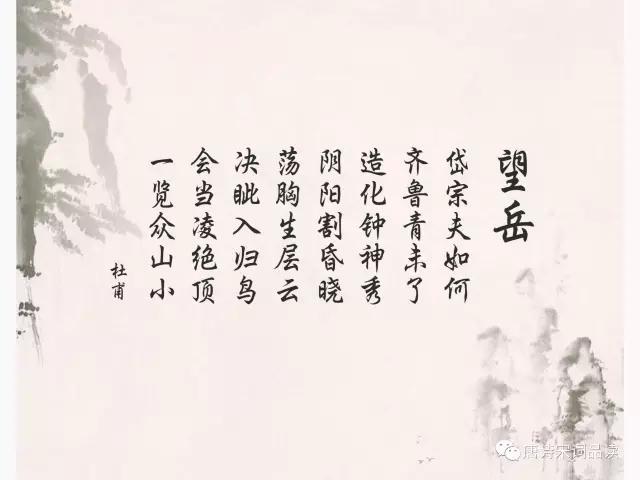 望岳
岱宗夫如何
齐鲁青未了
造化钟神秀
阴阳割昏晓
荡胸生层云
决眦入归鸟
会当凌绝顶
一览众山小
杜甫
唐诗宋词品读